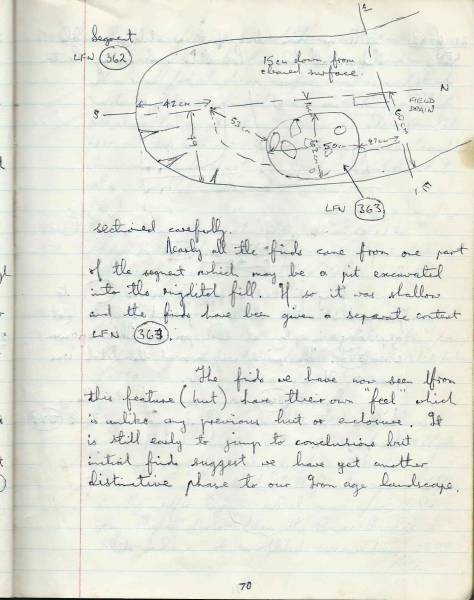 Segment
LFN 362
15cm down from
cleaned surface.
N
FIELD
DRAIN
S
42cm
53cm
50cm
27cm
60cm
E
LFN 363
sectioned carefully.
Nearly all the finds came from one part
of the segment which may be a pit excavated
into the ringditch fill. If so it was shallow
and the finds have been given a separate context
LFN 363.
The finds we have now seen from
this feature (hut) have their own "feel" which
is unlike any previous hut or enclosure. It
is still early to jump to conclusions but
initial finds suggest we have yet another
distinctive phase to our Iron age landscape.
70